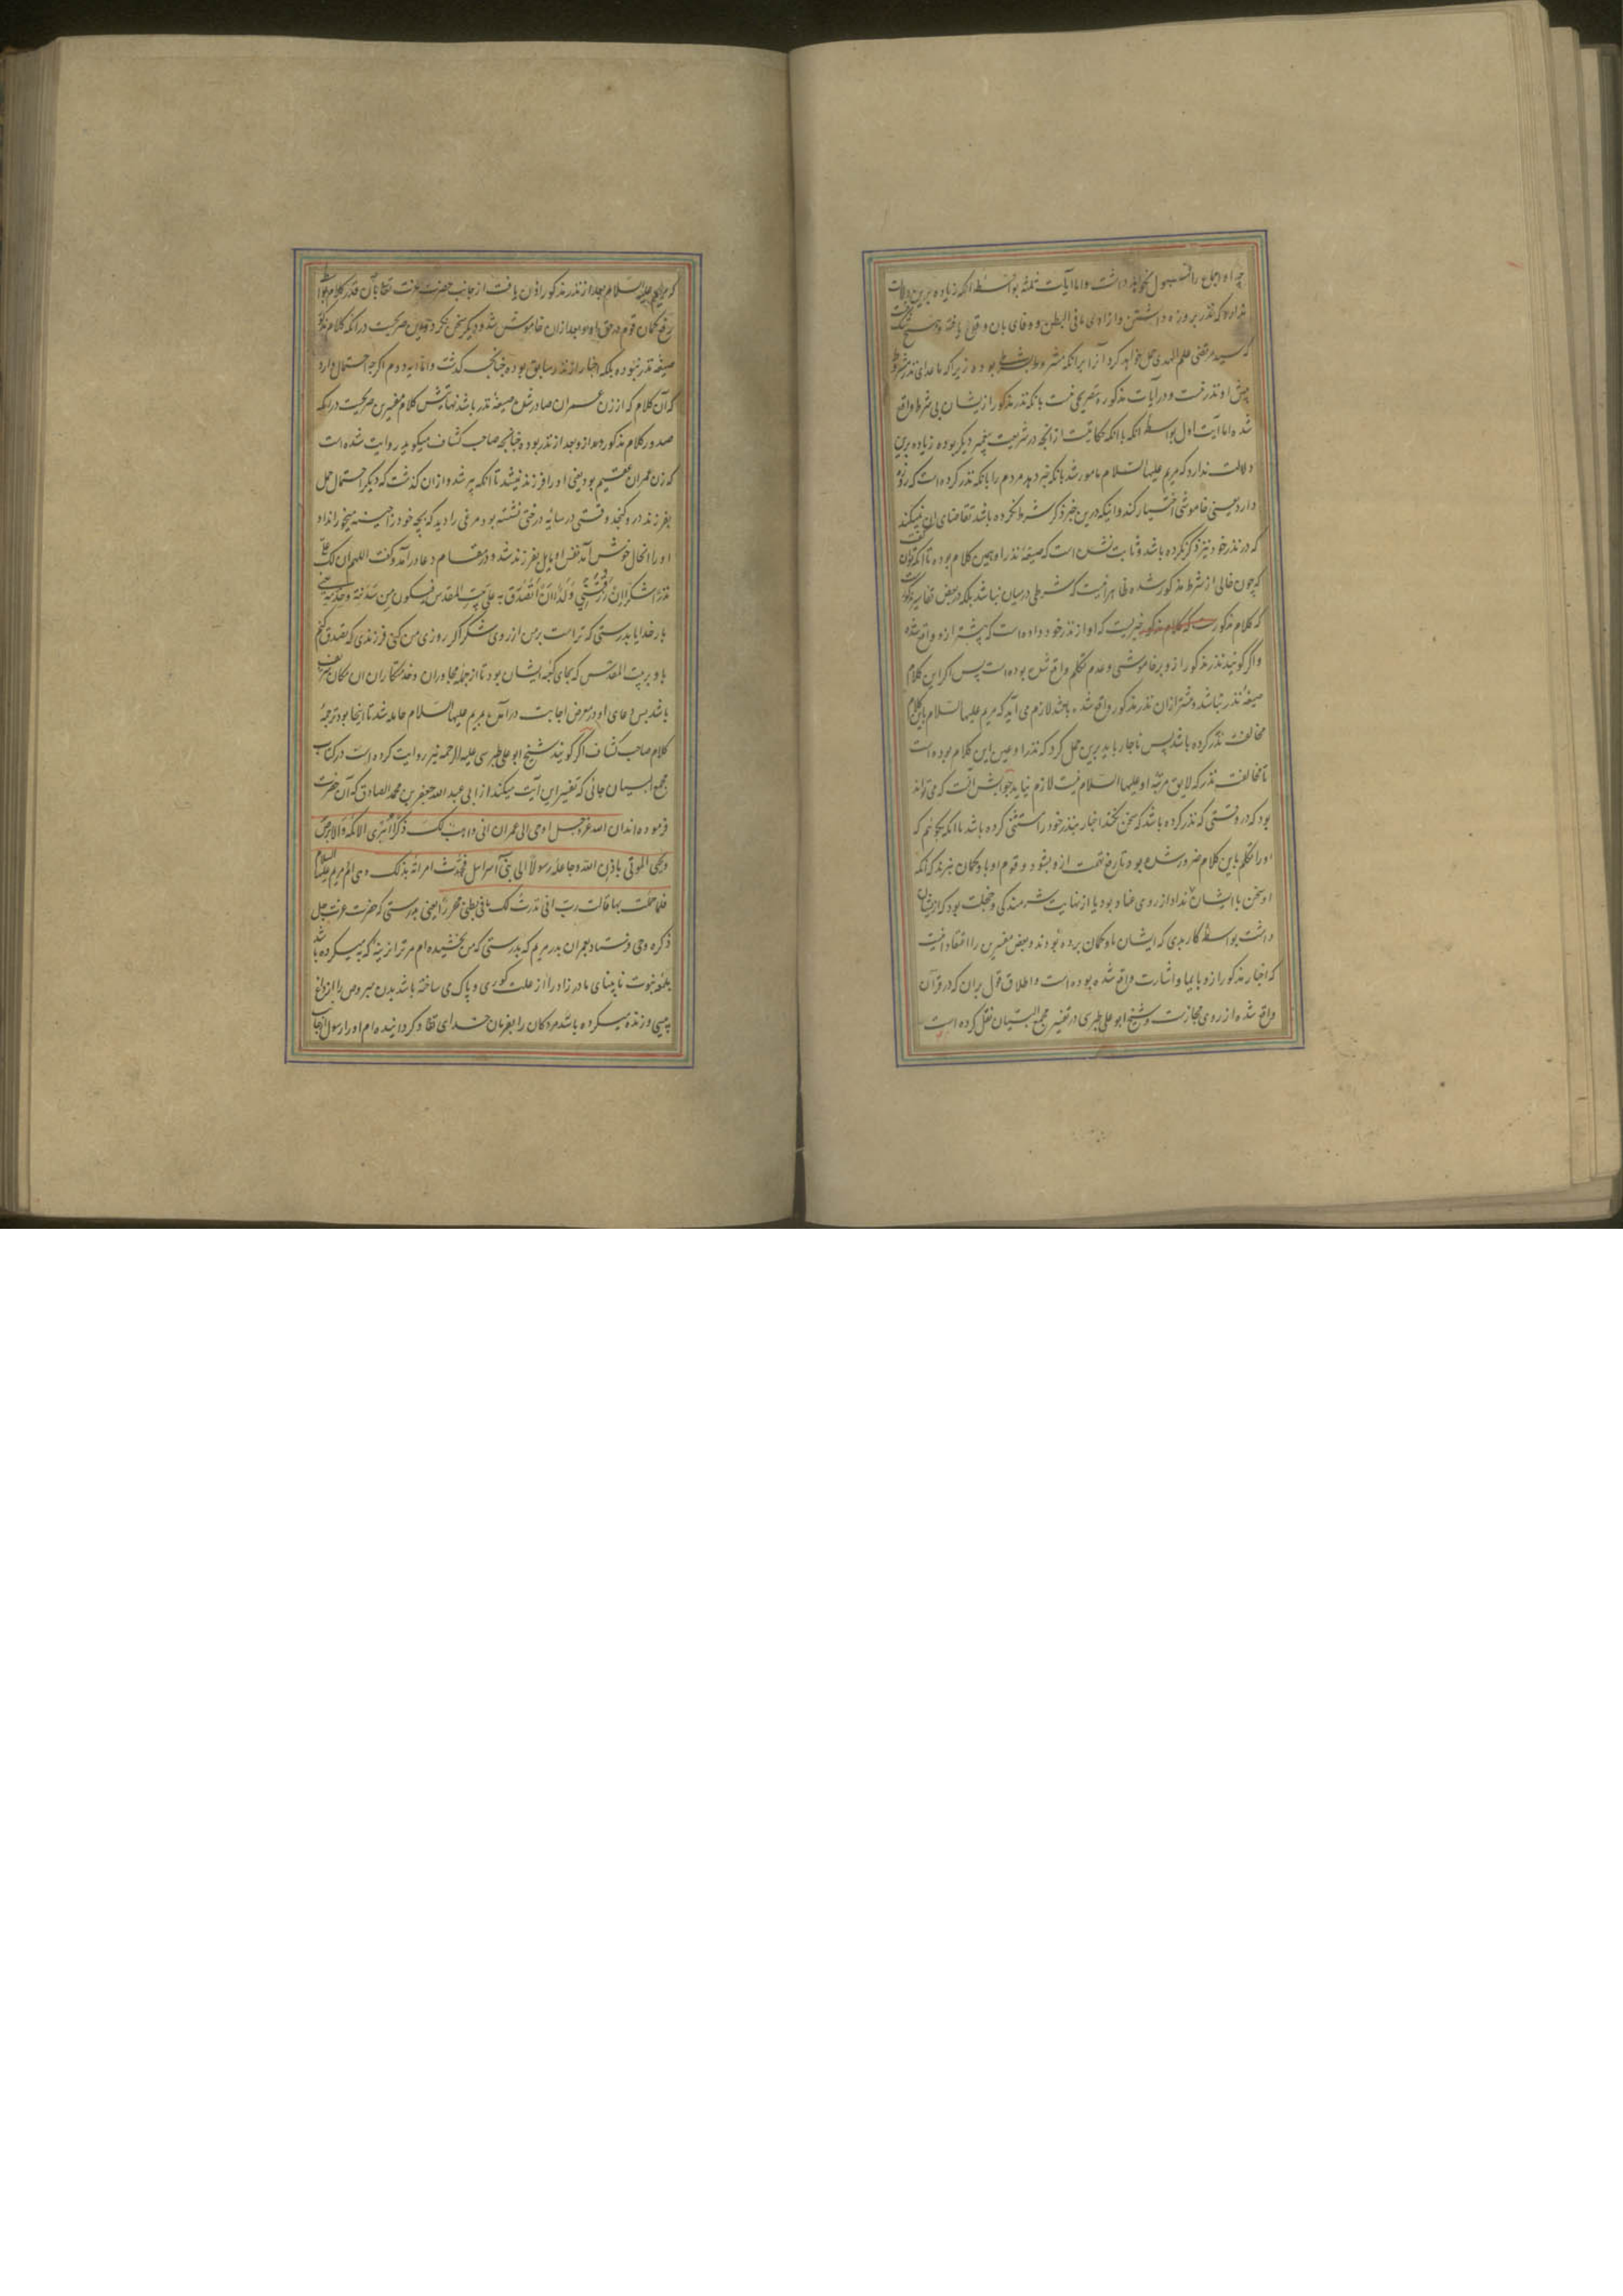 چه او اجماع را قبول نخواهد داشت و اما آیات ثلثه بواسطه آنکه زیاده برین دلالت
ندارد که نذر بروزه داشتن و آزادی ما فی البطن و وفای بآن وقوع یافته و
که سید مرتضی علم الهدی حمل خواهد کرد آنرا برآنکه مشروط بشرط بوده زیرا که ماعدای نذر مشروط
پیش او نذر نیست و در آیات مذکوره تصریحی نیست بآنکه نذر مذکور ازیشان بی شرط واقع
شده اما آیت اول بواسطه آنکه با آنکه حکایتست از آنچه در شریعت پیغمبر دیگر بوده زیاده برین
دلالت ندارد که مریم علیها السلام مامور شد بآنکه خبر دهد مردم را بآنکه نذر کرده است که روزه
دارد یعنی خاموشی اختیار کند و اینکه درین خبر ذکر شرط نکرده باشد تقاضای آن نمیکند
که در نذر خود نیز ذکر نکرده باشد و ثابت نشده است که صیغهٔ نذر او همین کلام بوده تا آنکه توان گفت
که چون خالی از شرط مذکور شده ظاهر اینست که شرطی در میان نباشد بلکه در بعض تفاسیر مذکورست
که کلام مذکور خبریست که او از نذر خود داده است که پیشتر ازو واقع شده
و اگر گویند نذر مذکور ازو بر خاموشی و عدم تکلم واقع شده بوده است پس اگر این کلام
صیغهٔ نذر نباشد و پیشتر ازان نذر مذکور واقع شده باشد لازم می آید که مریم علیها السلام باین کلام
مخالفت نذر کرده باشد پس ناچار باید برین حمل کرد که نذر او عین این کلام بوده است
تا مخالفت نذر که لایق مرتبهٔ او علیها السلام نیست لازم نیاید جوابش آنست که می تواند
بود که در وقتی که نذر کرده باشد که سخن نکند اخبار بنذر خود را مستثنی کرده باشد با آنکه
او را تکلم باین کلام ضرور شده بود تا رفع تهمت ازو بشود و قوم او باو گمان نبرند که آنکه
او سخن با ایشان نداد از روی عناد بود یا از نهایت شرمندگی و خجلت بود که ازیشان
داشت بواسطه کار بدی که ایشان باو گمان برده بودند و بعض مفسرین را اعتقاد اینست
که اخبار مذکور ازو بایما و اشارت واقع شده بوده است و اطلاق قول بران که در قرآن
واقع شده از روی مجازست و شیخ ابو علی طبرسی در تفسیر مجمع البیان نقل کرده است
که مریم علیها السلام بعد از نذر مذکور اذن یافت از جانب حضرت عزت تعالی بآن قدر کلام بواسطه
رفع گمان قوم در حق او و بعد ازان خاموش شد و دیگر سخن نکرد و این صریحست درآنکه کلام مذکور
صیغهٔ نذر نبوده بلکه اخبار از نذر سابق بوده چنانچه گذشت و اما آیه دوم اگرچه احتمال دارد
که آن کلام که از زن عمران صادر شده صیغهٔ نذر باشد نهایتش کلام مفسرین صریحست درینکه
صدور کلام مذکوره ازو بعد از نذر بوده چنانچه صاحب کشاف میگوید روایت شده است
که زن عمران عقیم بود یعنی او را فرزند نمیشد تا آنکه پیر شد و ازان گذشت که دیگر احتمال حمل
بفرزند درو گنجد وقتی در سایهٔ درختی نشسته بود مرغی را دید که بچه خود را چینه میخوراند او
او را آنحال خوش آمد نفس او مایل بفرزند شد و در مقام دعا درآمد و گفت اللهم ان لک علیّ
نذرا شکرا ان رزقتنی ولدا ان اتصدق به علی بیت المقدس فیکون من سدنته و خدمته یعنی
بار خدایا بدرستی که تراست بر من از روی شکر اگر روزی من کنی فرزندی که تصدق کنم
باو بر بیت المقدس که بجای کعبه ایشان بود تا از جملهٔ مجاوران و خدمتکاران آن مکان شریف
باشد پس دعای او در معرض اجابت درآمده بمریم علیها السلام حامله شد تا اینجا بود ترجمهٔ
کلام صاحب کشاف اگر گویند شیخ ابو علی طبرسی علیه الرحمه نیز روایت کرده است در کتاب
مجمع البیان جائی که تفسیر این آیت میکند از ابی عبد الله جعفر بن محمد الصادق که آن حضرت
فرموده اند ان الله عز و جل اوحی الی عمران انی واهب لک ذکرا یبرئ الاکمه و الابرص
و یحیی الموتی باذن الله و جاعله رسولا الی بنی اسرائیل فحدث امراته بذلک و هی ام مریم علیها السلام
فلما حملت بها قالت رب انی نذرت لک ما فی بطنی محررا یعنی بدرستی که حضرت عزت جل
ذکره وحی فرستاد بعمران پدر مریم که بدرستی که من بخشیده ام مر ترا نرینه که به میکرده باشد
نابینای مادرزاد را از علت کوری و پاک می ساخته باشد بدن مبروص را از داغ
پیسی و زنده میکرده باشد مردگان را بفرمان خدای تعالی و گردانیده ام او را رسول از جانب